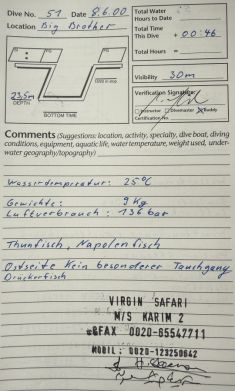 Dive No. 51 Date 8.6.00
Location Big Brother
Total Water
Hours to Date
Total Time
This Dive + 00:46
Total Hours =
23,5m
DEPTH
BOTTOM TIME
Visibility 30m
Verification Signature:
Instructor Divemaster Buddy
Certification No.
Comments (Suggestions: location, activity, specialty, dive boat, diving
conditions, equipment, aquatic life, water temperature, weight used, under-
water geography/topography)
Wassertemperatur: 25°C
Gewichte: 9 Kg
Luftverbrauch: 136 bar
Thunfisch, Napoleonfisch
Ostseite Kein besonderer Tauchgang
Drückerfisch
VIRGIN SAFARI
M/S KARIM 2
&FAX 0020-65547711
MOBIL: 0020-123250642